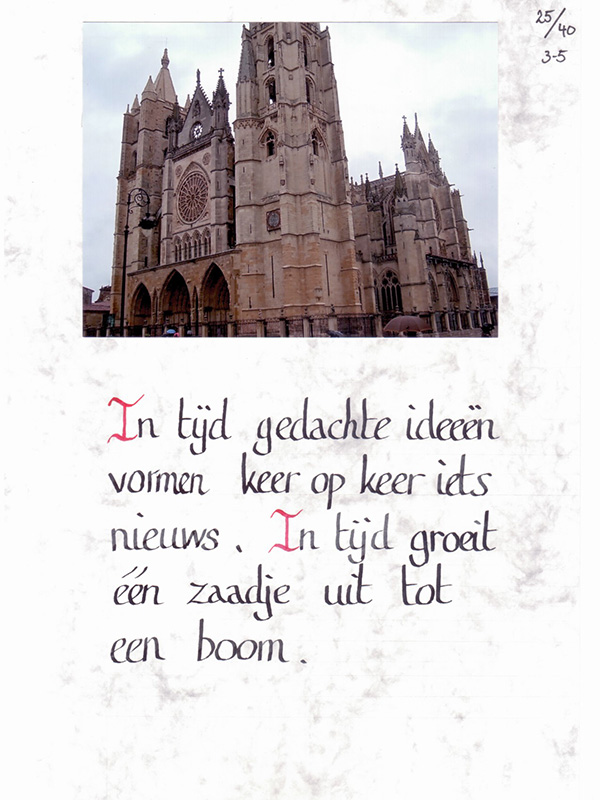 25/40
3-5
In tijd gedachte ideeën
vormen keer op keer iets
nieuws. In tijd groeit
één zaadje uit tot
een boom.